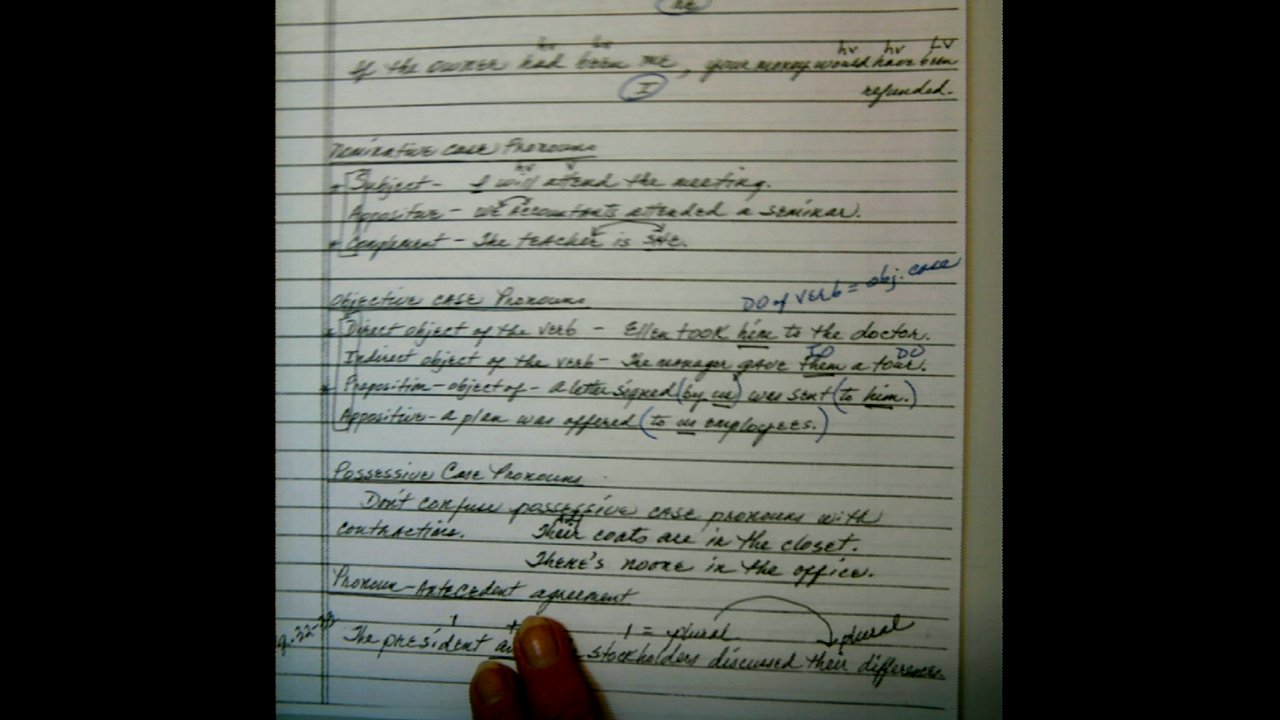 he
hv hv hv hv LV
If the owner had been me, your money would have been
I refunded.
Nominative case Pronouns
hv v
Subject - I will attend the meeting.
Appositive - we accountants attended a seminar.
Complement - The teacher is she.
DO of verb = obj. case
Objective case Pronouns
Direct object of the verb - Ellen took him to the doctor.
IO DO
Indirect object of the verb - The manager gave them a tour.
Preposition - object of - a letter signed (by me) was sent (to him.)
Appositive - a plan was offered (to us employees.)
Possessive Case Pronouns
Don't confuse possessive case pronouns with
contractions. Their coats are in the closet.
There's noone in the office.
Pronoun-Antecedent agreement
1 + 1 = plural plural
The president stockholders discussed their differences.